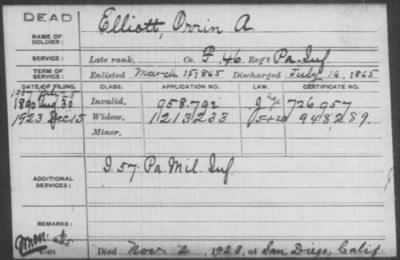 DEAD
Elliott, Orrin A
NAME OF SOLDIER:
SERVICE: Late rank, Co. F. 46. Reg't Pa. Inf.
TERM OF SERVICE: Enlisted March 15 1865 Discharged July 16, 1865
DATE OF FILING. CLASS. APPLICATION NO. LAW. CERTIFICATE NO.
1890 Aug. 30 Invalid, 958.792 726.957
1923 Dec 15 Widow, 1213233 948289
Minor,
ADDITIONAL SERVICES: I 57 Pa. Mil. Inf.
REMARKS:
Died Nov. 2, 1923, at San Diego, Calif.